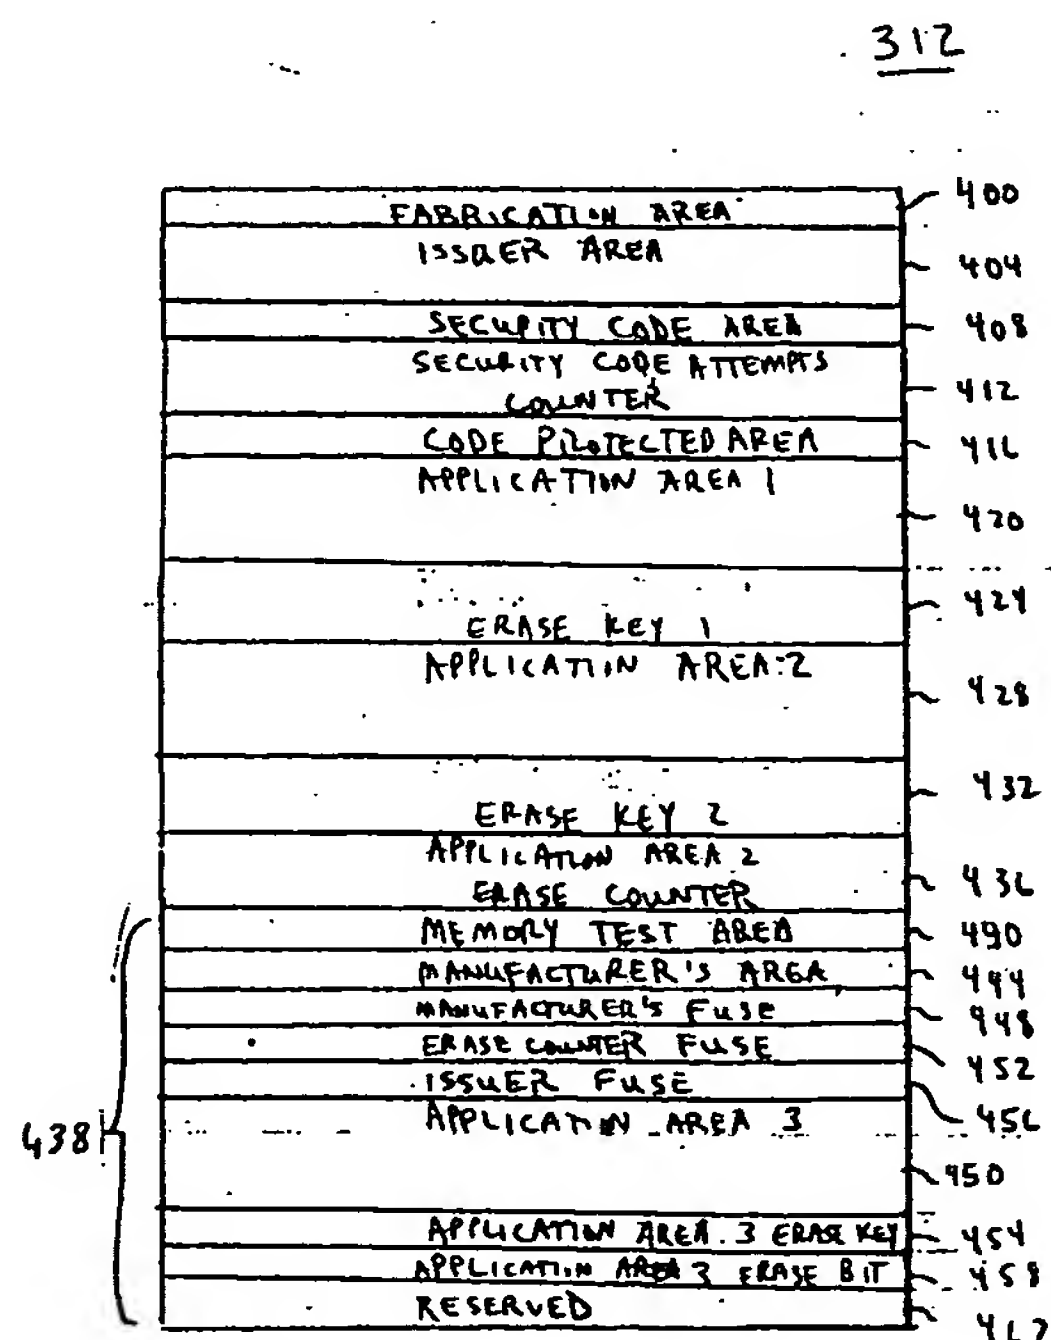 312
FABRICATION AREA 400
ISSUER AREA 404
SECURITY CODE AREA 408
SECURITY CODE ATTEMPTS
COUNTER 412
CODE PROTECTED AREA 416
APPLICATION AREA 1
420
424
ERASE KEY 1
APPLICATION AREA 2
428
432
ERASE KEY 2
APPLICATION AREA 2
ERASE COUNTER 436
MEMORY TEST AREA 490
MANUFACTURER'S AREA 444
MANUFACTURER'S FUSE 948
ERASE COUNTER FUSE 452
ISSUER FUSE 456
APPLICATION AREA 3
438
450
APPLICATION AREA 3 ERASE KEY 454
APPLICATION AREA 3 ERASE BIT 458
RESERVED 462